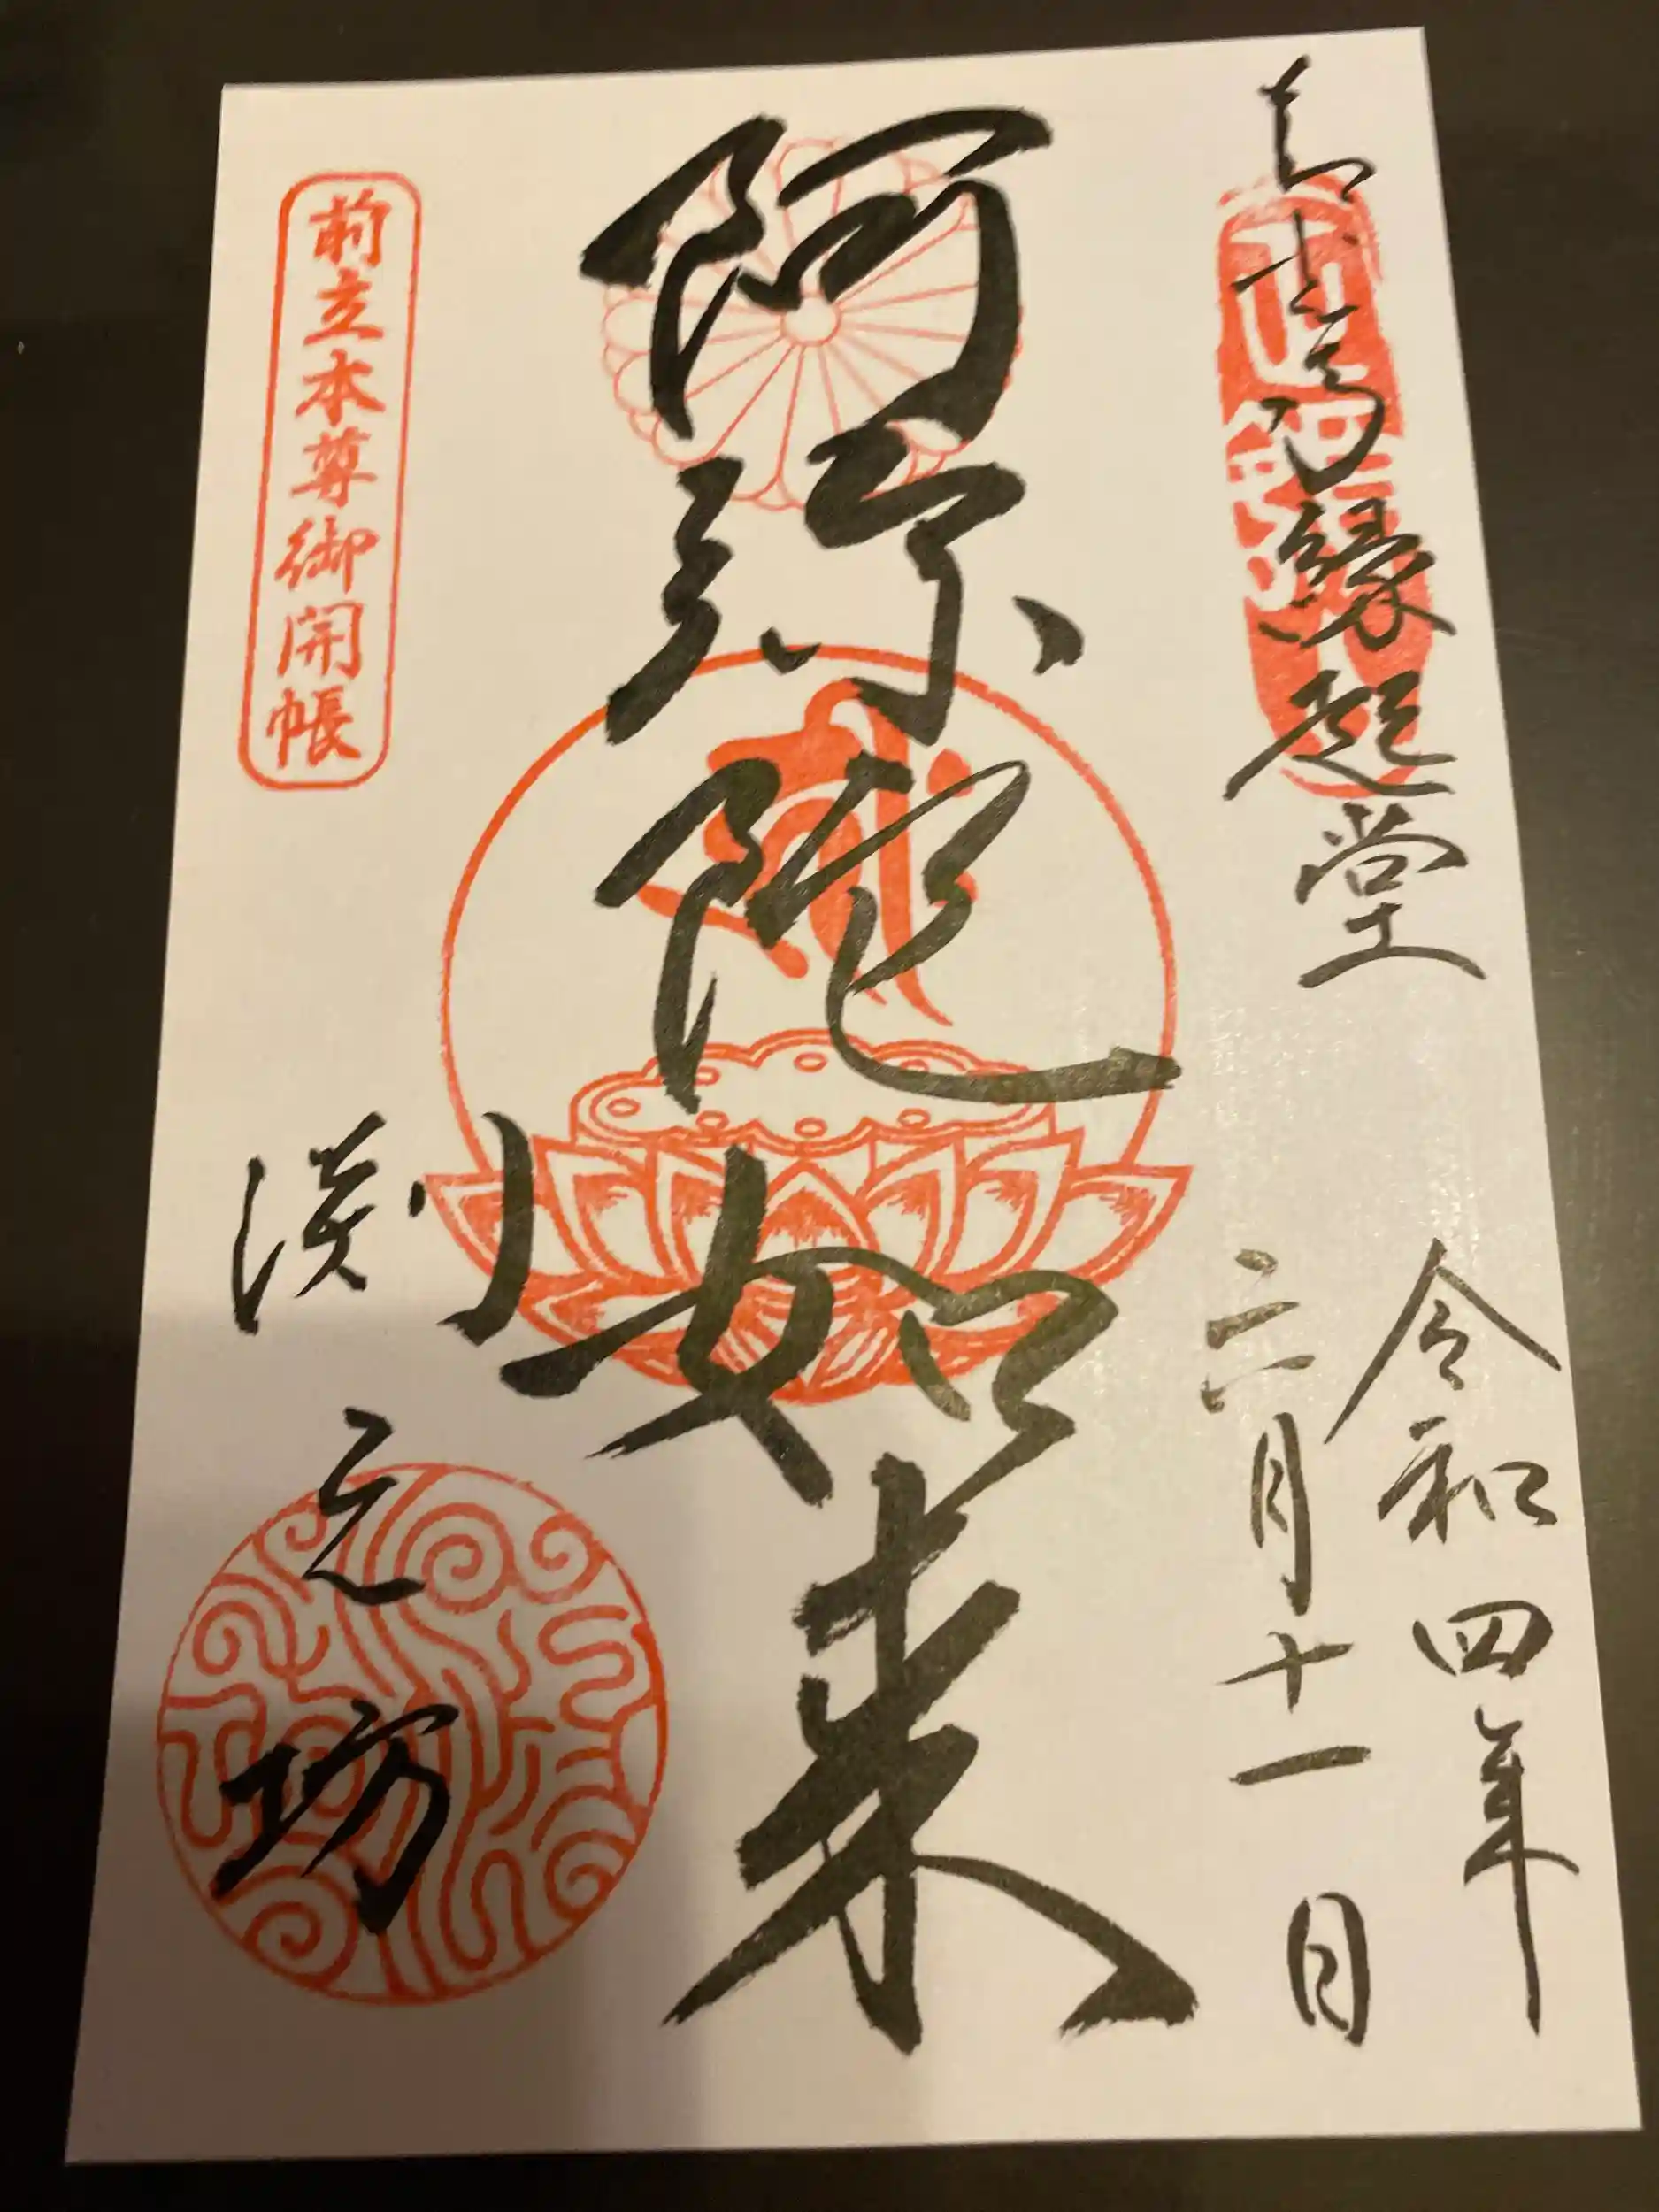 善光寺縁起堂
令和四年
六月十一日
阿弥陀如来
前立本尊御開帳
淵之坊